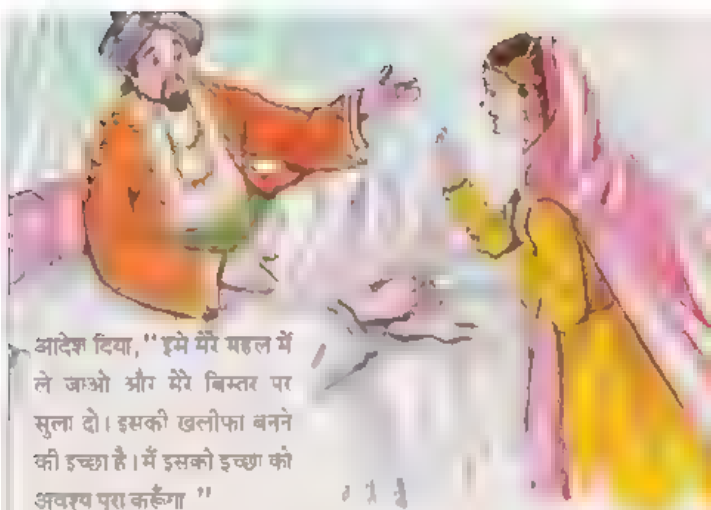 आदेश दिया, "इसे मेरे महल में
ले जाओ और मेरे बिस्तर पर
सुला दो। इसकी खलीफा बनने
की इच्छा है। मैं इसकी इच्छा को
अवश्य पूरा करूँगा "